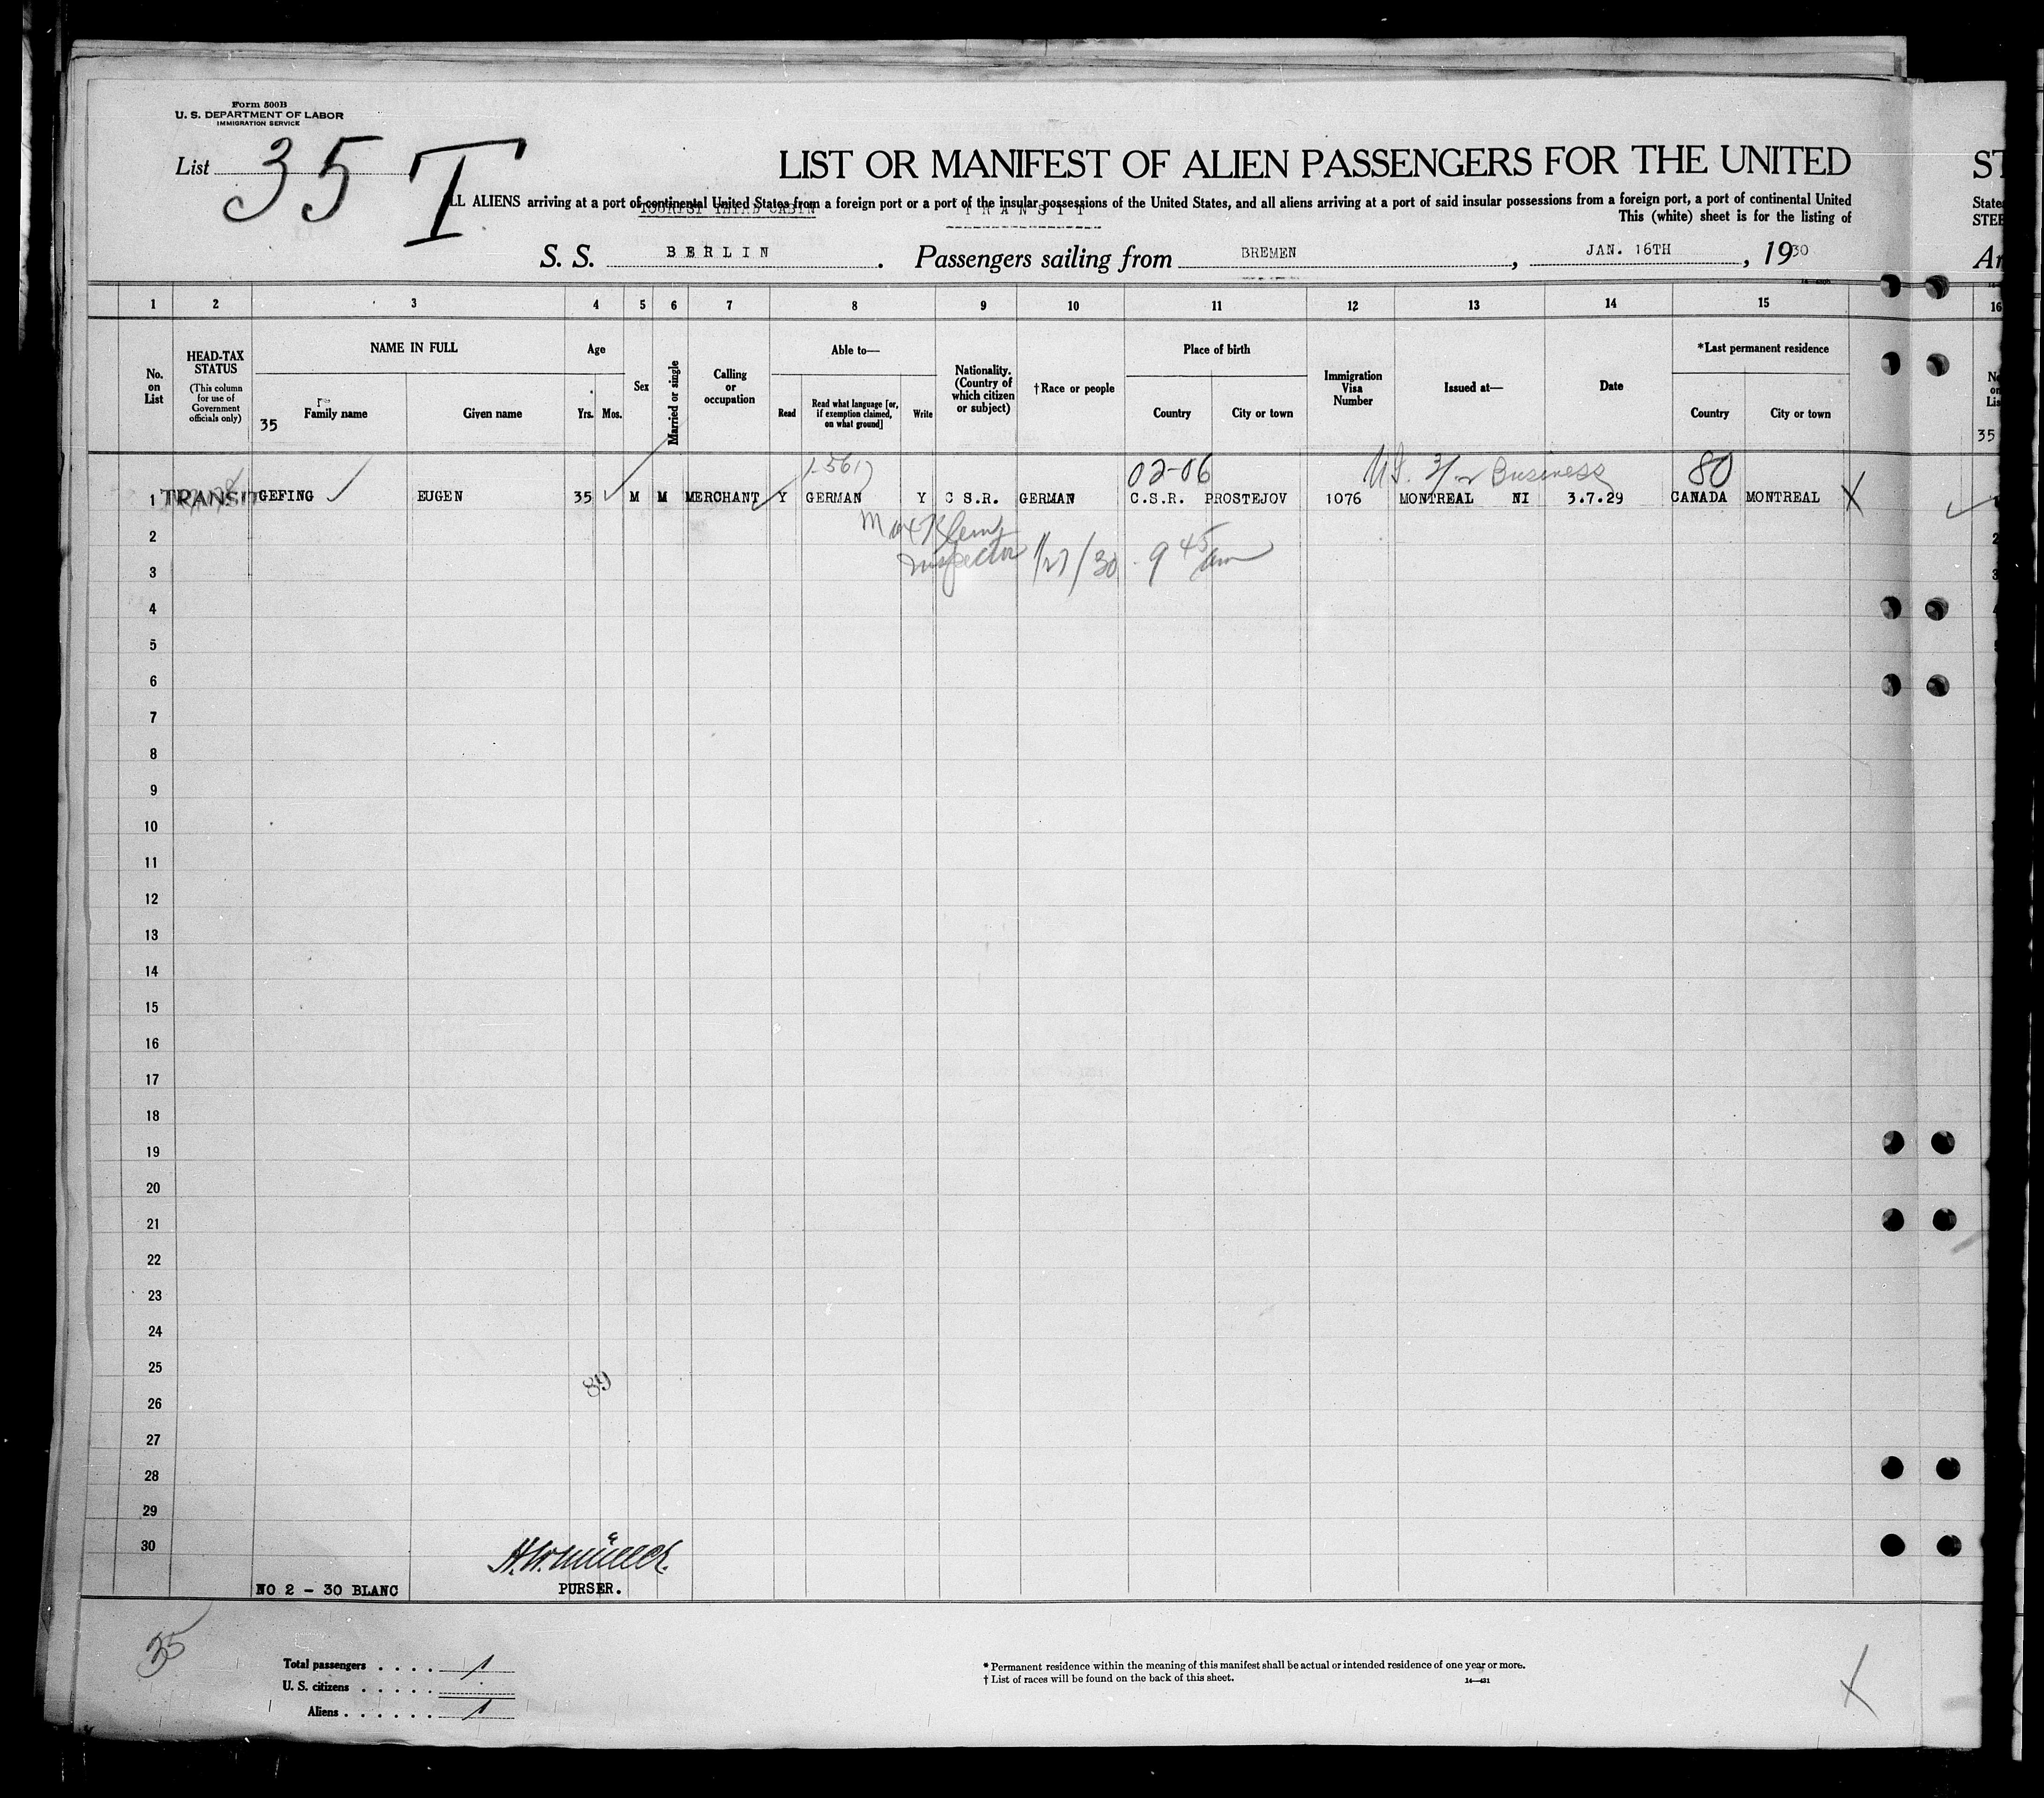 Form 500B
U. S. DEPARTMENT OF LABOR
IMMIGRATION SERVICE
List 35 T
LIST OR MANIFEST OF ALIEN PASSENGERS FOR THE UNITED
ST
LL ALIENS arriving at a port of continental United States from a foreign port or a port of the insular possessions of the United States, and all aliens arriving at a port of said insular possessions from a foreign port, a port of continental United
State
TOURIST THIRD CABIN TRANSIT
This (white) sheet is for the listing of
STEE
S. S. BERLIN. Passengers sailing from BREMEN, JAN. 16TH, 1930
Ar
1 2 3 4 5 6 7 8 9 10 11 12 13 14 15 16
No. on List
HEAD-TAX STATUS
(This column for use of Government officials only)
NAME IN FULL
35 Family name
Given name
Age
Yrs. Mos.
Sex
Married or single
Calling or occupation
Able to—
Read
Read what language [or, if exemption claimed, on what ground]
Write
Nationality. (Country of which citizen or subject)
†Race or people
Place of birth
Country
City or town
Immigration Visa Number
Issued at—
Date
*Last permanent residence
Country
City or town
35
02-06 Business 80
1 TRANSIT GEFING EUGEN 35 M M MERCHANT Y GERMAN Y C S.R. GERMAN C.S.R. PROSTEJOV 1076 MONTREAL NI 3.7.29 CANADA MONTREAL X
2
Inspector 1/27/30 9 45 am
3
4
5
6
7
8
9
10
11
12
13
14
15
16
17
18
19
20
21
22
23
24
25
89
26
27
28
29
30
NO 2 - 30 BLANC
PURSER.
35
Total passengers . . . . 1
U. S. citizens . . . . .
Aliens . . . . . . 1
* Permanent residence within the meaning of this manifest shall be actual or intended residence of one year or more.
† List of races will be found on the back of this sheet.
X